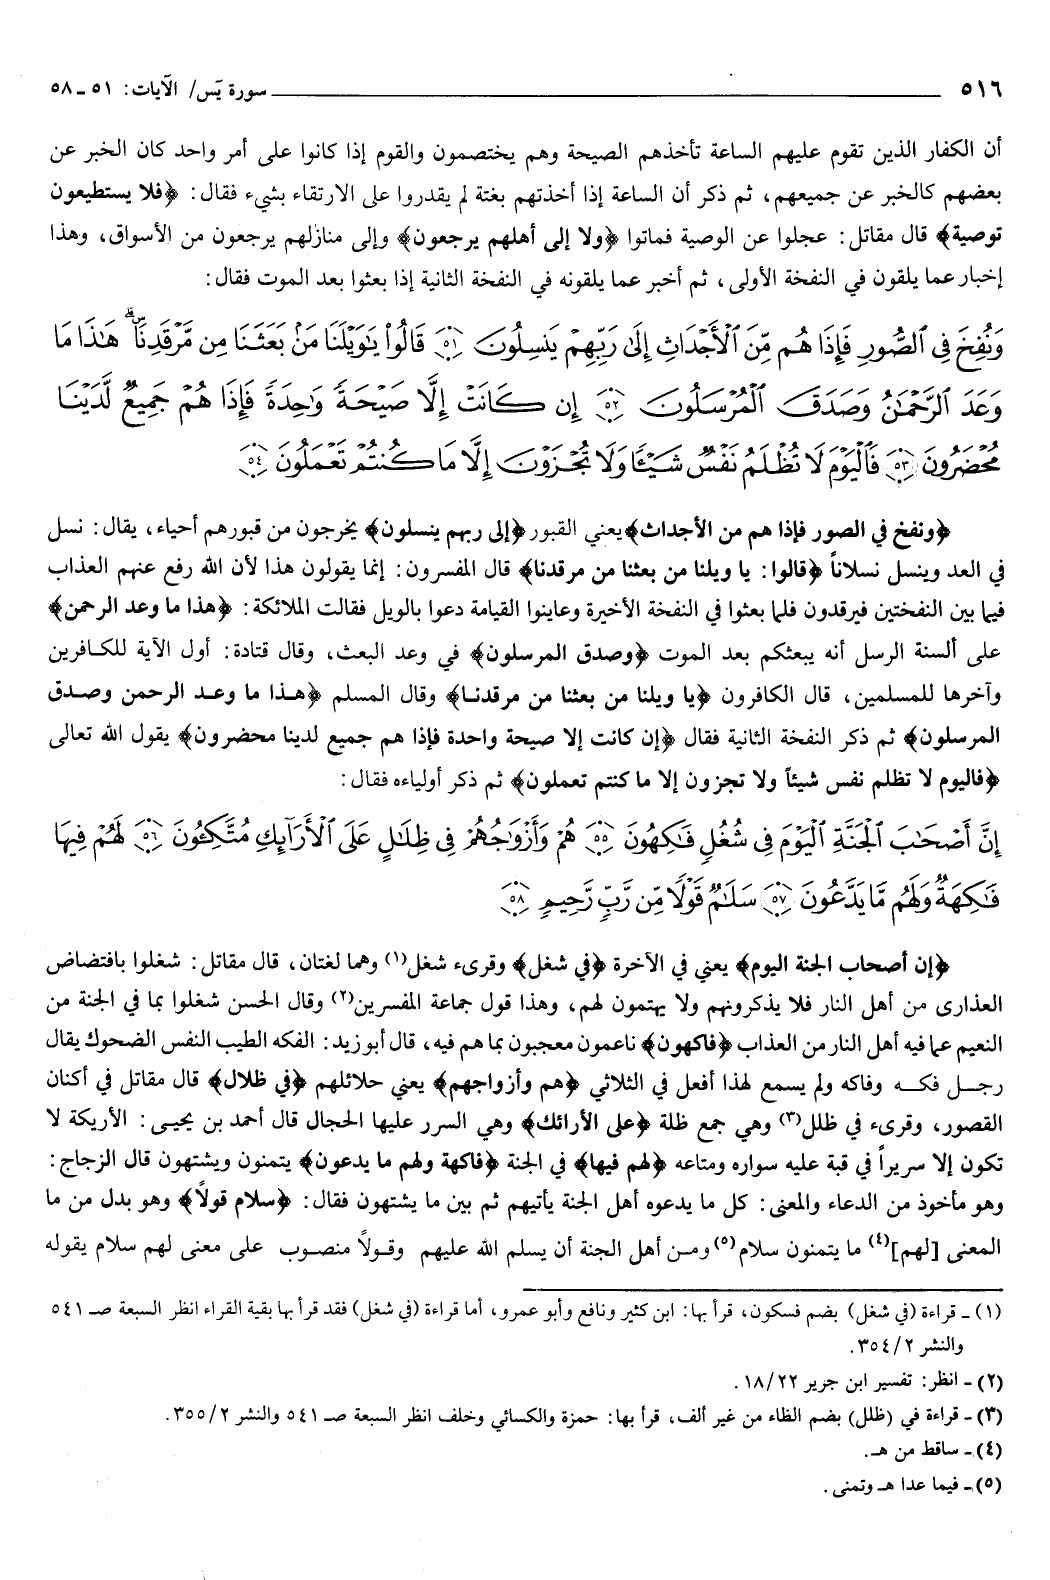 ٥١٦ سورة يٓس/ الآيات: ٥١ ـ ٥٨
أن الكفار الذين تقوم عليهم الساعة تأخذهم الصيحة وهم يختصمون والقوم إذا كانوا على أمر واحد كان الخبر عن
بعضهم كالخبر عن جميعهم، ثم ذكر أن الساعة إذا أخذتهم بغتة لم يقدروا على الارتقاء بشيء فقال: ﴿فلا يستطيعون
توصية﴾ قال مقاتل: عجلوا عن الوصية فماتوا ﴿ولا إلى أهلهم يرجعون﴾ وإلى منازلهم يرجعون من الأسواق، وهذا
إخبار عما يلقون في النفخة الأولى، ثم أخبر عما يلقونه في النفخة الثانية إذا بعثوا بعد الموت فقال:
وَنُفِخَ فِى ٱلصُّورِ فَإِذَا هُم مِّنَ ٱلْأَجْدَاثِ إِلَىٰ رَبِّهِمْ يَنسِلُونَ ﴿٥١﴾ قَالُوا۟ يَٰوَيْلَنَا مَنۢ بَعَثَنَا مِن مَّرْقَدِنَاۜۗ هَٰذَا مَا
وَعَدَ ٱلرَّحْمَٰنُ وَصَدَقَ ٱلْمُرْسَلُونَ ﴿٥٢﴾ إِن كَانَتْ إِلَّا صَيْحَةً وَٰحِدَةً فَإِذَا هُمْ جَمِيعٌ لَّدَيْنَا
مُحْضَرُونَ ﴿٥٣﴾ فَٱلْيَوْمَ لَا تُظْلَمُ نَفْسٌ شَيْـًٔا وَلَا تُجْزَوْنَ إِلَّا مَا كُنتُمْ تَعْمَلُونَ ﴿٥٤﴾
﴿ونفخ في الصور فإذا هم من الأجداث﴾ يعني القبور ﴿إلى ربهم ينسلون﴾ يخرجون من قبورهم أحياء، يقال: نسل
في العد وينسل نسلاناً ﴿قالوا: يا ويلنا من بعثنا من مرقدنا﴾ قال المفسرون: إنما يقولون هذا لأن الله رفع عنهم العذاب
فيما بين النفختين فيرقدون فلما بعثوا في النفخة الأخيرة وعاينوا القيامة دعوا بالويل فقالت الملائكة: ﴿هذا ما وعد الرحمن﴾
على ألسنة الرسل أنه يبعثكم بعد الموت ﴿وصدق المرسلون﴾ في وعد البعث، وقال قتادة: أول الآية للكافرين
وآخرها للمسلمين، قال الكافرون ﴿يا ويلنا من بعثنا من مرقدنا﴾ وقال المسلم ﴿هذا ما وعد الرحمن وصدق
المرسلون﴾ ثم ذكر النفخة الثانية فقال ﴿إن كانت إلا صيحة واحدة فإذا هم جميع لدينا محضرون﴾ يقول الله تعالى
﴿فاليوم لا تظلم نفس شيئاً ولا تجزون إلا ما كنتم تعملون﴾ ثم ذكر أولياءه فقال:
إِنَّ أَصْحَٰبَ ٱلْجَنَّةِ ٱلْيَوْمَ فِى شُغُلٍ فَٰكِهُونَ ﴿٥٥﴾ هُمْ وَأَزْوَٰجُهُمْ فِى ظِلَٰلٍ عَلَى ٱلْأَرَآئِكِ مُتَّكِـُٔونَ ﴿٥٦﴾ لَهُمْ فِيهَا
فَٰكِهَةٌ وَلَهُم مَّا يَدَّعُونَ ﴿٥٧﴾ سَلَٰمٌ قَوْلًا مِّن رَّبٍّ رَّحِيمٍ ﴿٥٨﴾
﴿إن أصحاب الجنة اليوم﴾ يعني في الآخرة ﴿في شغل﴾ وقرىء شغل(١) وهما لغتان، قال مقاتل: شغلوا بافتضاض
العذارى من أهل النار فلا يذكرونهم ولا يهتمون لهم، وهذا قول جماعة المفسرين(٢) وقال الحسن شغلوا بما في الجنة من
النعيم عما فيه أهل النار من العذاب ﴿فاكهون﴾ ناعمون معجبون بما هم فيه، قال أبو زيد: الفكه الطيب النفس الضحوك يقال
رجل فكه وفاكه ولم يسمع لهذا أفعل في الثلاثي ﴿هم وأزواجهم﴾ يعني حلائلهم ﴿في ظلال﴾ قال مقاتل في أكنان
القصور، وقرىء في ظلل(٣) وهي جمع ظلة ﴿على الأرائك﴾ وهي السرر عليها الحجال قال أحمد بن يحيى: الأريكة لا
تكون إلا سريراً في قبة عليه سواره ومتاعه ﴿لهم فيها﴾ في الجنة ﴿فاكهة ولهم ما يدعون﴾ يتمنون ويشتهون قال الزجاج:
وهو مأخوذ من الدعاء والمعنى: كل ما يدعوه أهل الجنة يأتيهم ثم بين ما يشتهون فقال: ﴿سلام قولاً﴾ وهو بدل من ما
المعنى [لهم](٤) ما يتمنون سلام(٥) ومن أهل الجنة أن يسلم الله عليهم وقولاً منصوب على معنى لهم سلام يقوله
(١) ـ قراءة (في شغل) بضم فسكون، قرأ بها: ابن كثير ونافع وأبو عمرو، أما قراءة (في شغل) فقد قرأ بها بقية القراء انظر السبعة صـ ٥٤١
والنشر ٣٥٤/٢.
(٢) ـ انظر: تفسير ابن جرير ١٨/٢٢.
(٣) ـ قراءة في (ظلل) بضم الظاء من غير ألف، قرأ بها: حمزة والكسائي وخلف انظر السبعة صـ ٥٤١ والنشر ٣٥٥/٢.
(٤) ـ ساقط من هـ.
(٥) ـ فيما عدا هـ وتمنى.